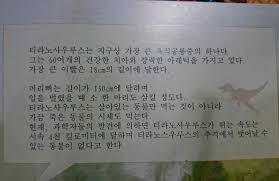 티라노사우루스는 지구상 가장 큰 육식공룡중의 하나다.
그는 60여개의 건강한 치아와 강력한 아래턱을 가지고 있다.
가장 큰 이빨은 18cm의 길이에 달한다.
머리뼈는 길이가 150cm에 달하며
입을 벌렸을 때 소 한 마리도 삼킬 정도다.
티라노사우루스는 살아있는 동물만 먹는 것이 아니라
가끔 죽은 동물의 시체도 먹는다.
현재, 과학자들의 발견에 의하면 티라노사우루스가 뛰는 속도는
시속 4원 킬로미터에 달하며 티라노사우루스의 추격에서 벗어날수
있는 동물이 없다고 한다.